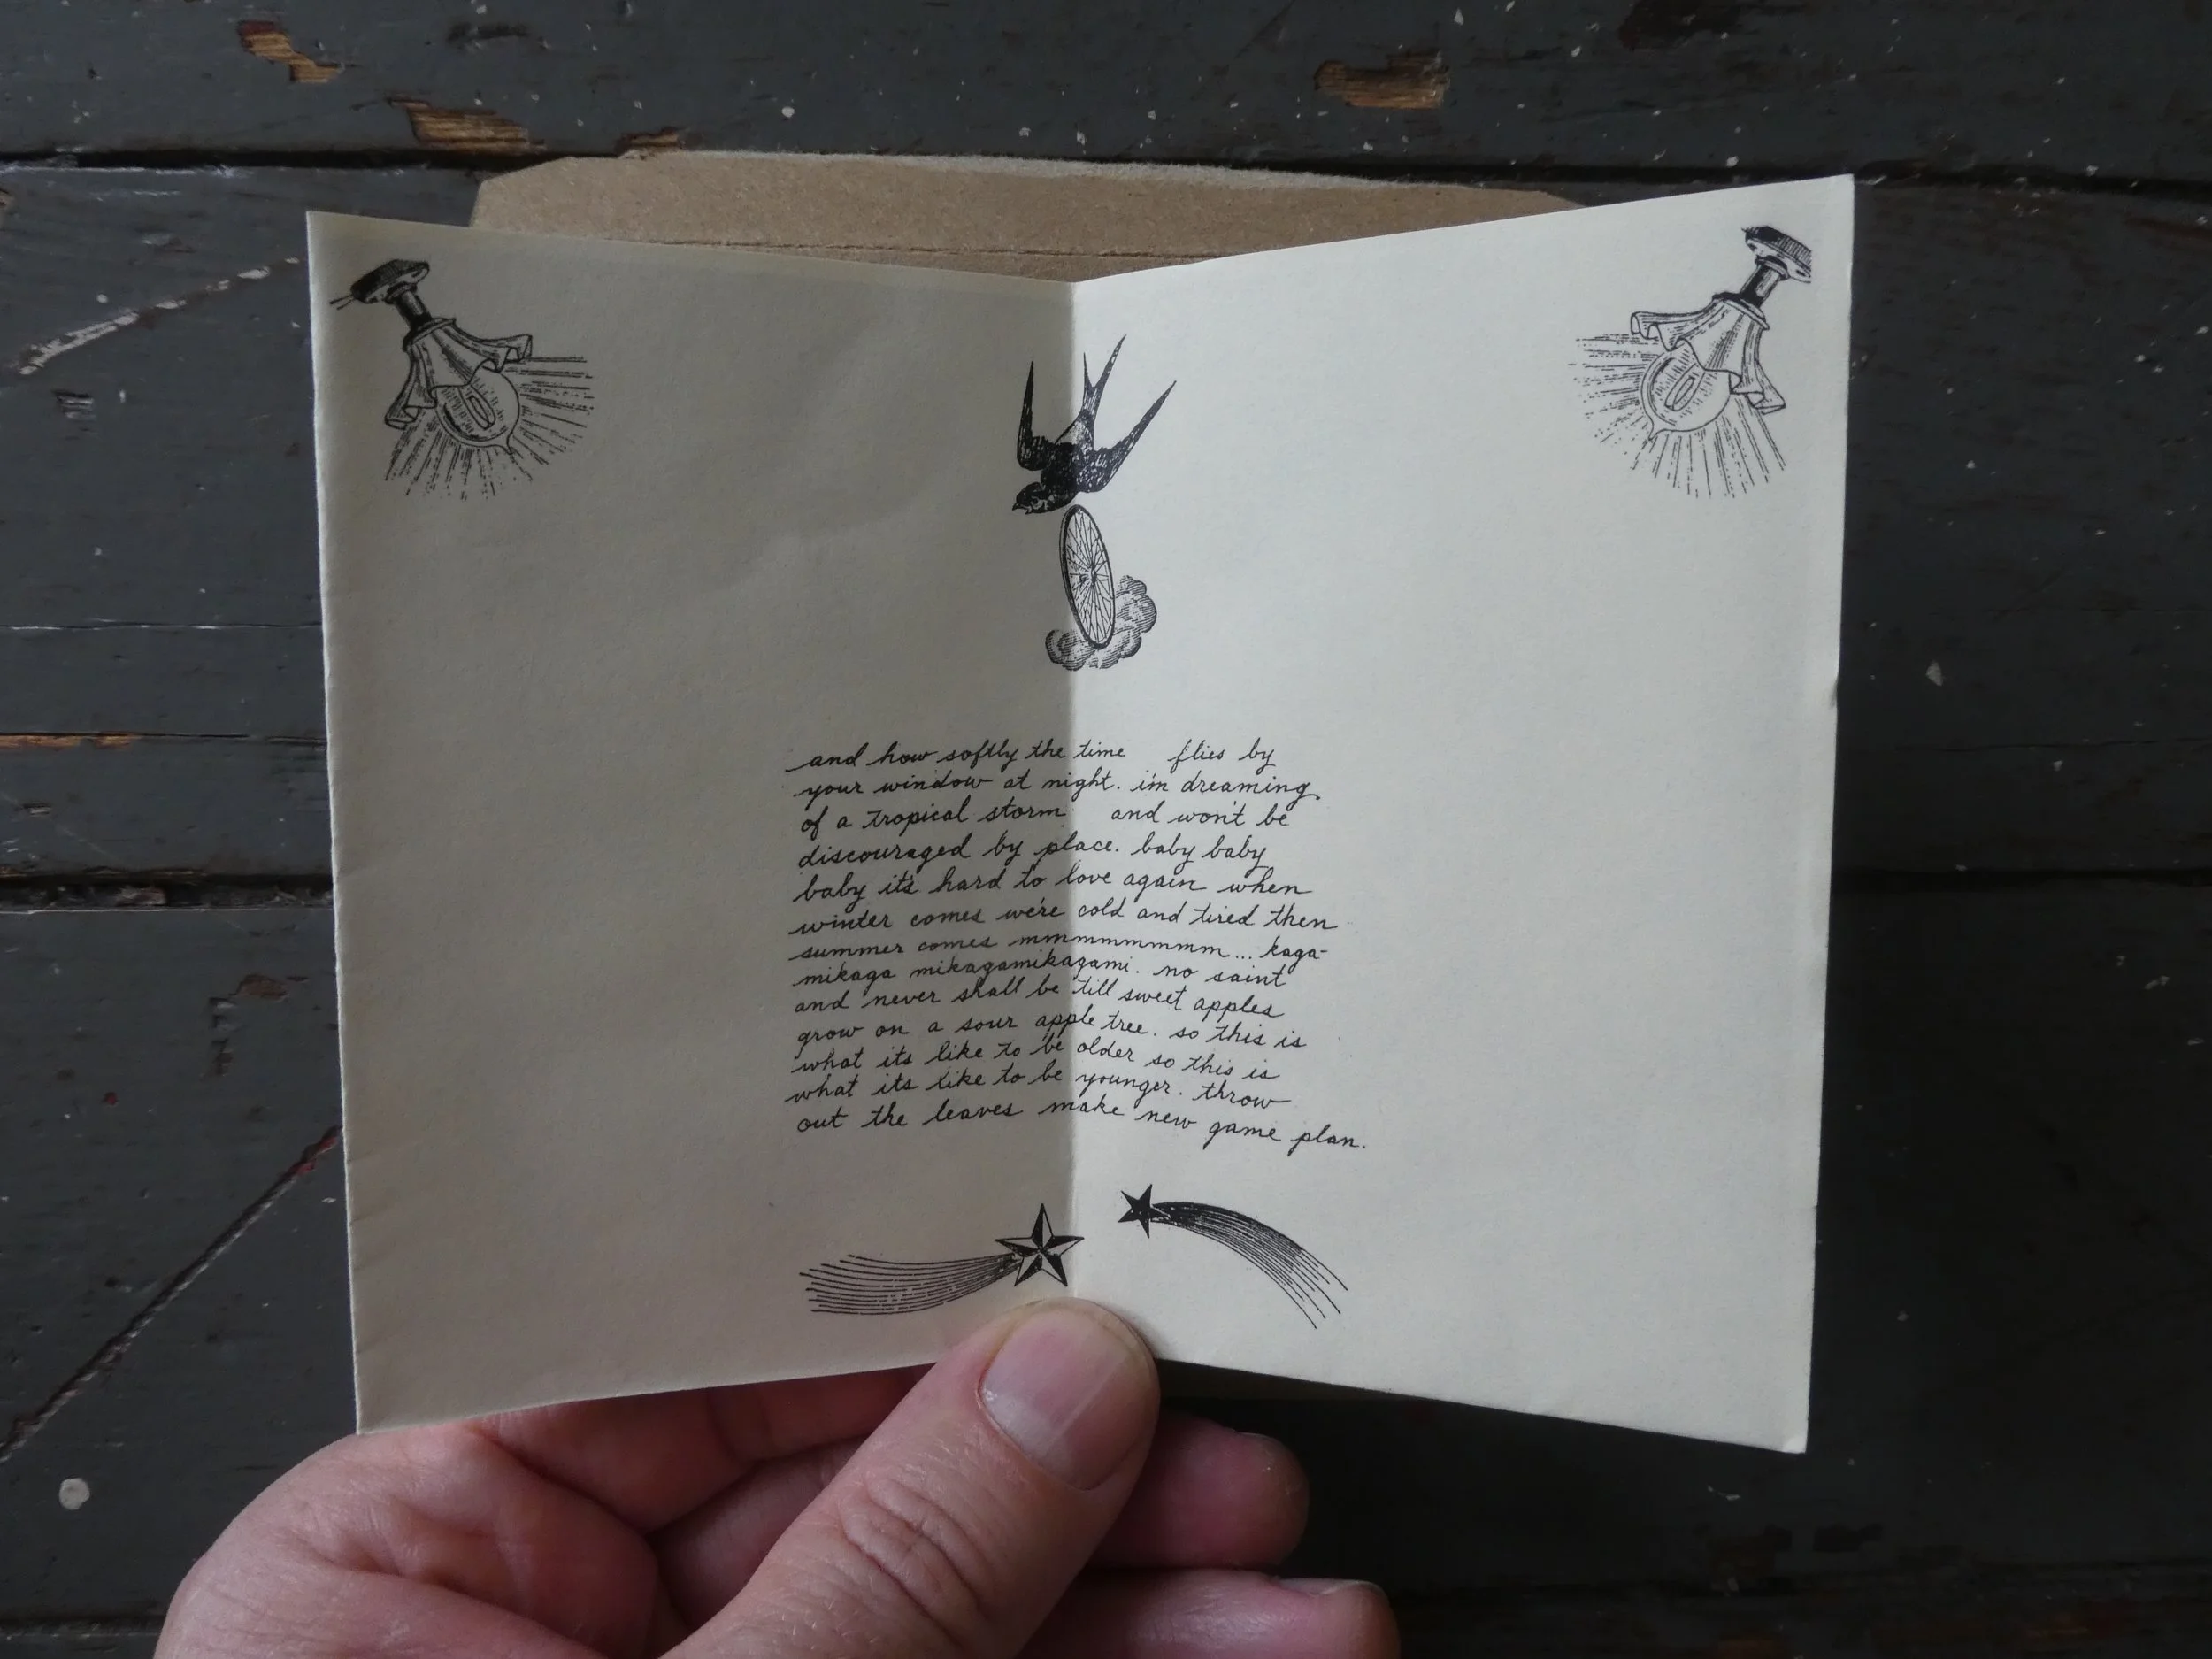 and how softly the time flies by
your window at night. i'm dreaming
of a tropical storm and won't be
discouraged by place. baby baby
baby it's hard to love again when
winter comes we're cold and tired then
summer comes mmmmmmmmm... kaga-
mikaga mikagamikagami. no saint
and never shall be 'till sweet apples
grow on a sour apple tree. so this is
what its like to be older so this is
what its like to be younger. throw
out the leaves make new game plan.